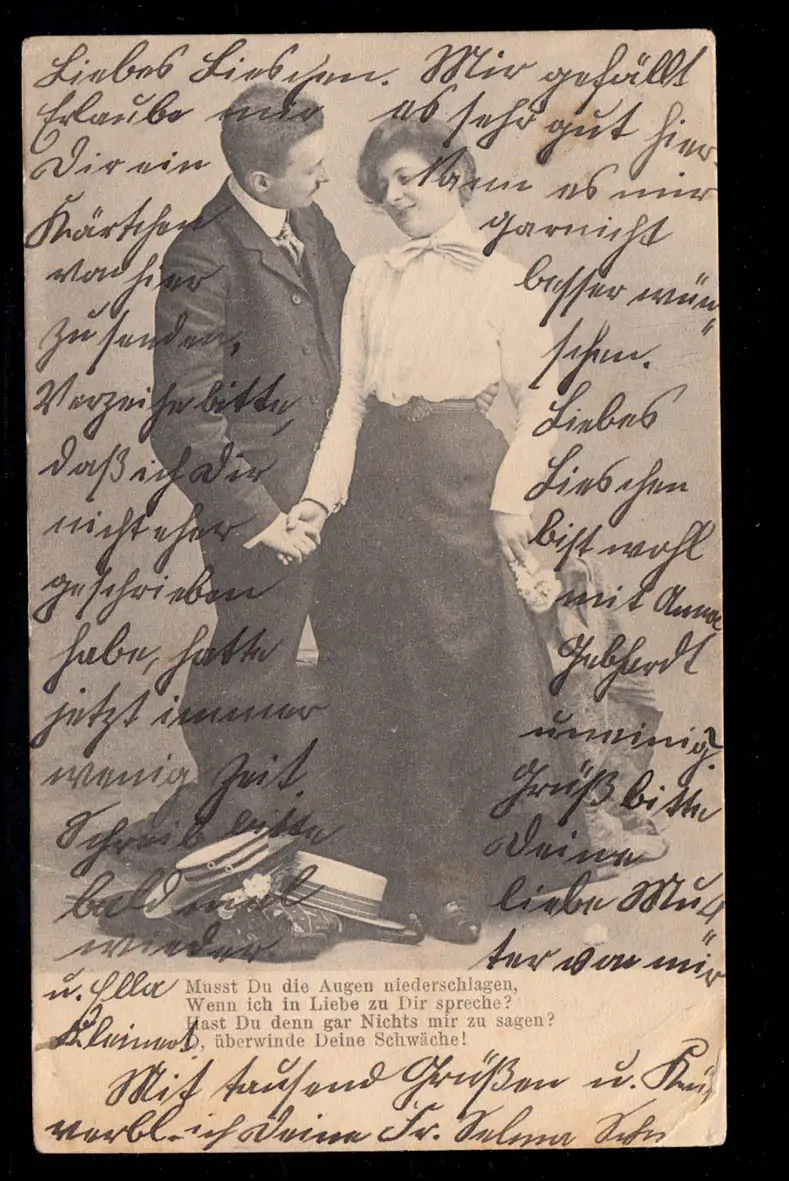 Liebes Lieschen.
Erlaube mir
Dir ein
Kärtchen
von hier
zu senden,
Verzeihe bitte,
daß ich Dir
nicht eher
geschrieben
habe, hatte
jetzt immer
wenig Zeit.
Schreib bitte
bald mal
wieder
Mir gefällt
es sehr gut hier.
Kann es mir
garnicht
besser wün
schen.
Liebes
Lieschen
bist wohl
mit Anna
Gebhardt
uneinig.
Grüß bitte
Deine
liebe Mut
ter von mir
u. Ella
Kleinert,
Musst Du die Augen niederschlagen,
Wenn ich in Liebe zu Dir spreche?
Hast Du denn gar Nichts mir zu sagen?
O, überwinde Deine Schwäche!
Mit tausend Grüßen u. Küs
verbl. ich Deine Fr. Selma